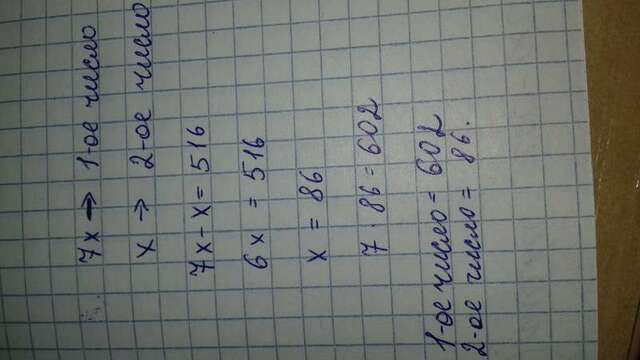 7x → 1-ое число
x → 2-ое число
7x - x = 516
6x = 516
x = 86
7 · 86 = 602
1-ое число = 602
2-ое число = 86.